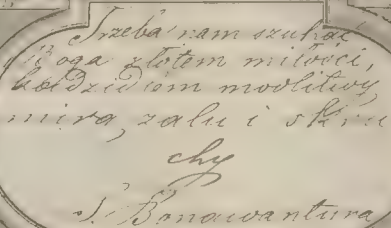 Trzeba nam szukać
Boga złotem miłości,
kadzidłem modlitwy,
mirą żalu i skru
chy
S. Bonawantura